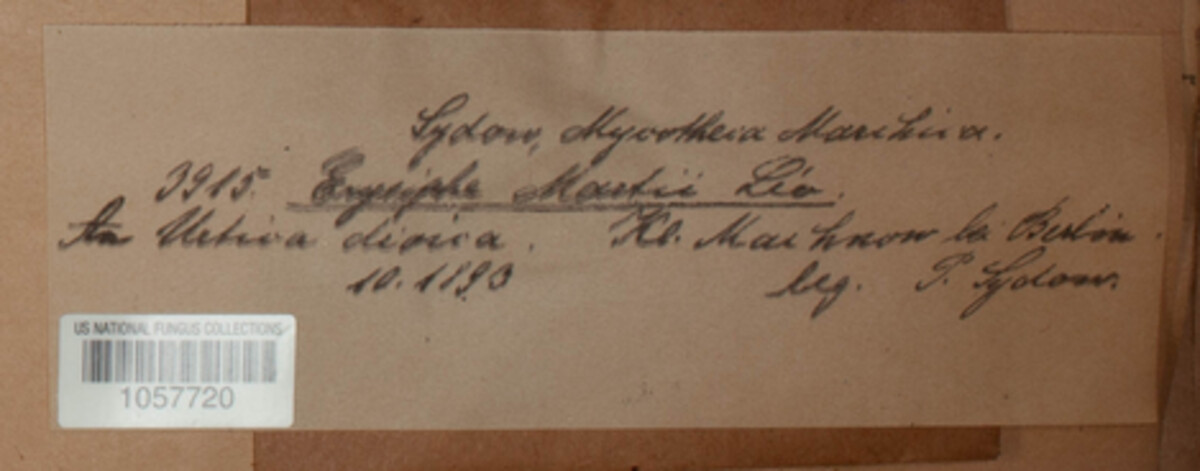 Sydow, Mycotheca Marchica.
3915. Erysiphe Martii Lév.
An Urtica dioica. Kl. Machnow bei Berlin.
10. 1893 leg. P. Sydow.
US NATIONAL FUNGUS COLLECTIONS
1057720